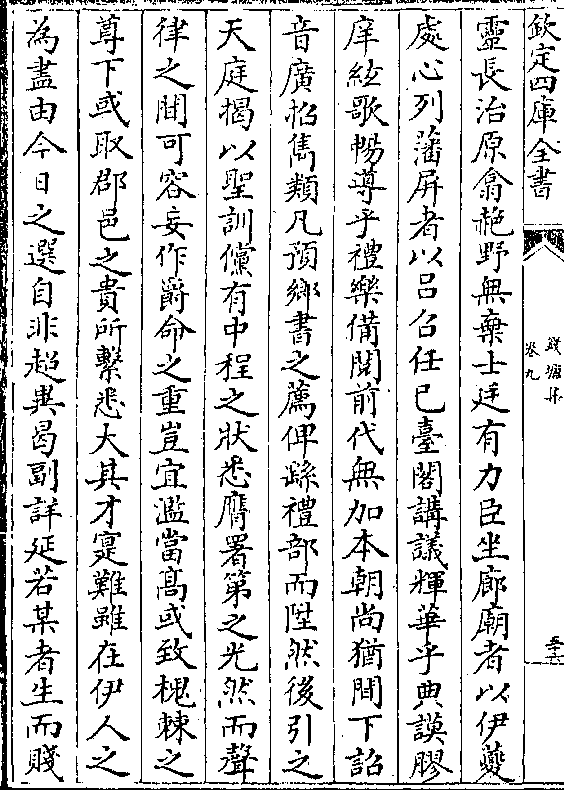 欽定四庫全書
錢塘集
卷九
五十六
靈長治原翕赩野無棄士廷有力臣坐廊廟者以伊夔
處心列藩屏者以吕召任已臺閣講議輝華乎典謨膠
庠絃歌暢導乎禮樂備閲前代無加本朝尚猶間下詔
音廣招雋類凡預鄉書之薦俾蹂禮部而陞然後引之
天庭揭以聖訓儻有中程之狀悉膺署第之光然而聲
律之間可容妄作爵命之重豈宜濫當髙或致槐棘之
尊下或取郡邑之貴所繫悉大其才寔難雖在伊人之
為盡由今日之選自非超與曷副詳延若某者生而賤